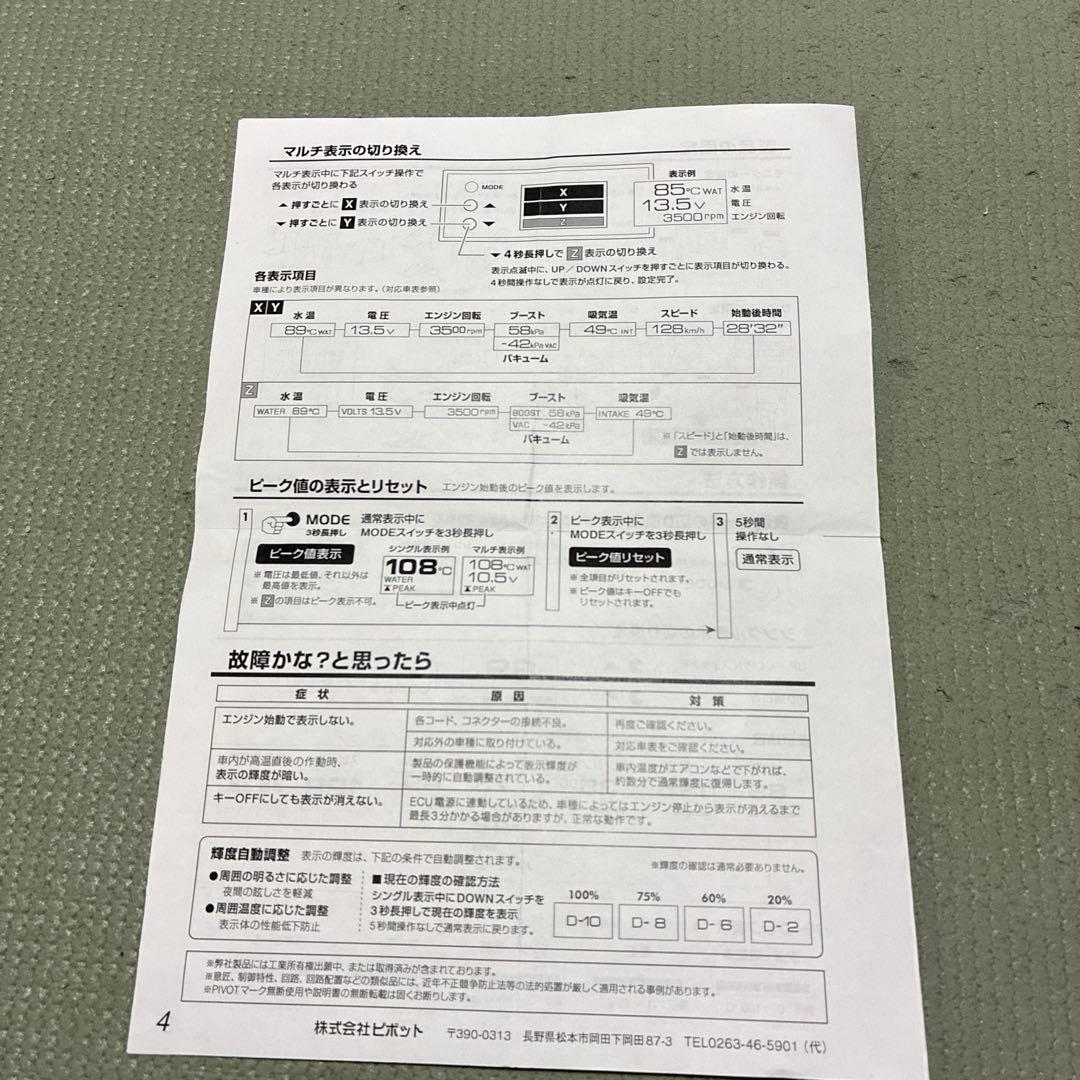 マルチ表示の切り換え
マルチ表示中に下記スイッチ操作で
各表示が切り換わる
▲ 押すごとに X 表示の切り換え
▼ 押すごとに Y 表示の切り換え
MODE
▲
▼
X
Y
Z
表示例
85℃WAT 水温
13.5V 電圧
3500rpm エンジン回転
▼ 4秒長押しで Z 表示の切り換え
表示点滅中に、UP/DOWNスイッチを押すごとに表示項目が切り換わる。
4秒間操作なしで表示が点灯に戻り、設定完了。
各表示項目
車種により表示項目が異なります。(対応車表参照)
X Y
水温 電圧 エンジン回転 ブースト 吸気温 スピード 始動後時間
89℃WAT 13.5V 3500rpm 58kPa 49℃ INT 128km/h 28'32"
-42kPa VAC
バキューム
Z
水温 電圧 エンジン回転 ブースト 吸気温
WATER 89℃ VOLTS 13.5V 3500rpm BOOST 58kPa INTAKE 49℃
VAC -42kPa
バキューム
※「スピード」と「始動後時間」は、
Z では表示しません。
ピーク値の表示とリセット エンジン始動後のピーク値を表示します。
1
MODE
3秒長押し
通常表示中に
MODEスイッチを3秒長押し
ピーク値表示
※電圧は最低値、それ以外は
最高値を表示。
※ Zの項目はピーク表示不可。
シングル表示例 マルチ表示例
108℃
WATER
PEAK
108℃WAT
10.5V
PEAK
ピーク表示中点灯
2
ピーク表示中に
MODEスイッチを3秒長押し
ピーク値リセット
※全項目がリセットされます。
※ピーク値はキーOFFでも
リセットされます。
3
5秒間
操作なし
通常表示
故障かな?と思ったら
症状 原因 対策
エンジン始動で表示しない。 各コード、コネクターの接続不良。 再度ご確認ください。
対応外の車種に取り付けている。 対応車表をご確認ください。
車内が高温直後の作動時、 製品の保護機能によって表示輝度が 車内温度がエアコンなどで下がれば、
表示の輝度が暗い。 一時的に自動調整されている。 約数分で通常輝度に復帰します。
キーOFFにしても表示が消えない。 ECU電源に連動しているため、車種によってはエンジン停止から表示が消えるまで
最長3分かかる場合がありますが、正常な動作です。
輝度自動調整 表示の輝度は、下記の条件で自動調整されます。
※輝度の確認は通常必要ありません。
●周囲の明るさに応じた調整
夜間の眩しさを軽減
●周囲温度に応じた調整
表示体の性能低下防止
■現在の輝度の確認方法
シングル表示中にDOWNスイッチを
3秒長押しで現在の輝度を表示
5秒間操作なしで通常表示に戻ります。
100% 75% 60% 20%
D-10 D- 8 D- 6 D- 2
※弊社製品には工業所有権出願中、または取得済みが含まれております。
※意匠、制御特性、回路、回路配置などの類似品には、近年不正競争防止法等の法的処置が厳しく適用される事例があります。
※PIVOTマーク無断使用や説明書の無断転載は固くお断りします。
4
株式会社ピボット 〒390-0313 長野県松本市岡田下岡田87-3 TEL0263-46-5901(代)